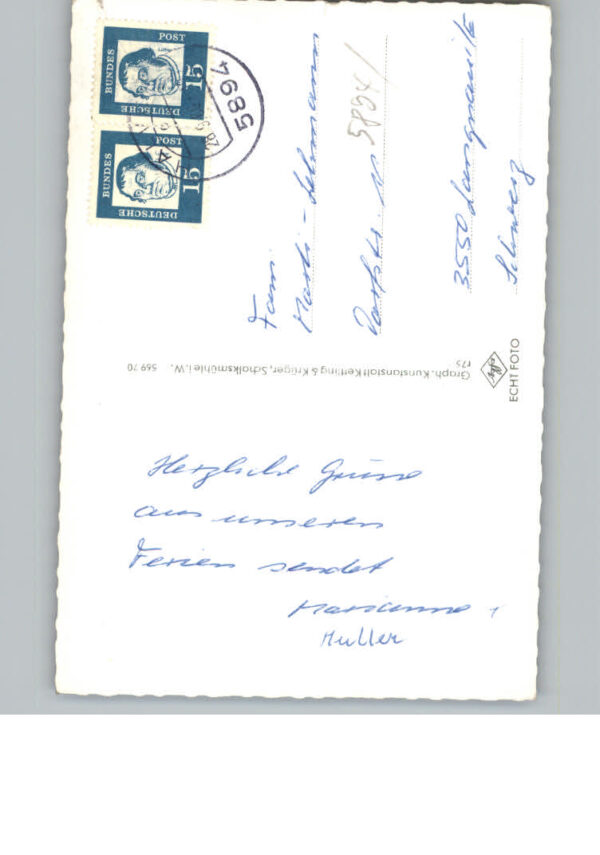 Herzliche Grüsse
aus unseren
Ferien sendet
Marianne +
Muller
Fam.
Marti - Lehmann
Dorfstr. 11
5894/
3550 Langnau i/E
Schweiz
Graph. Kunstanstalt Ketting & Krüger, Schalksmühle i. W. 569 70
r75
Agfa
ECHT FOTO
DEUTSCHE
BUNDES
POST
15
DEUTSCHE
BUNDES
POST
15
5894